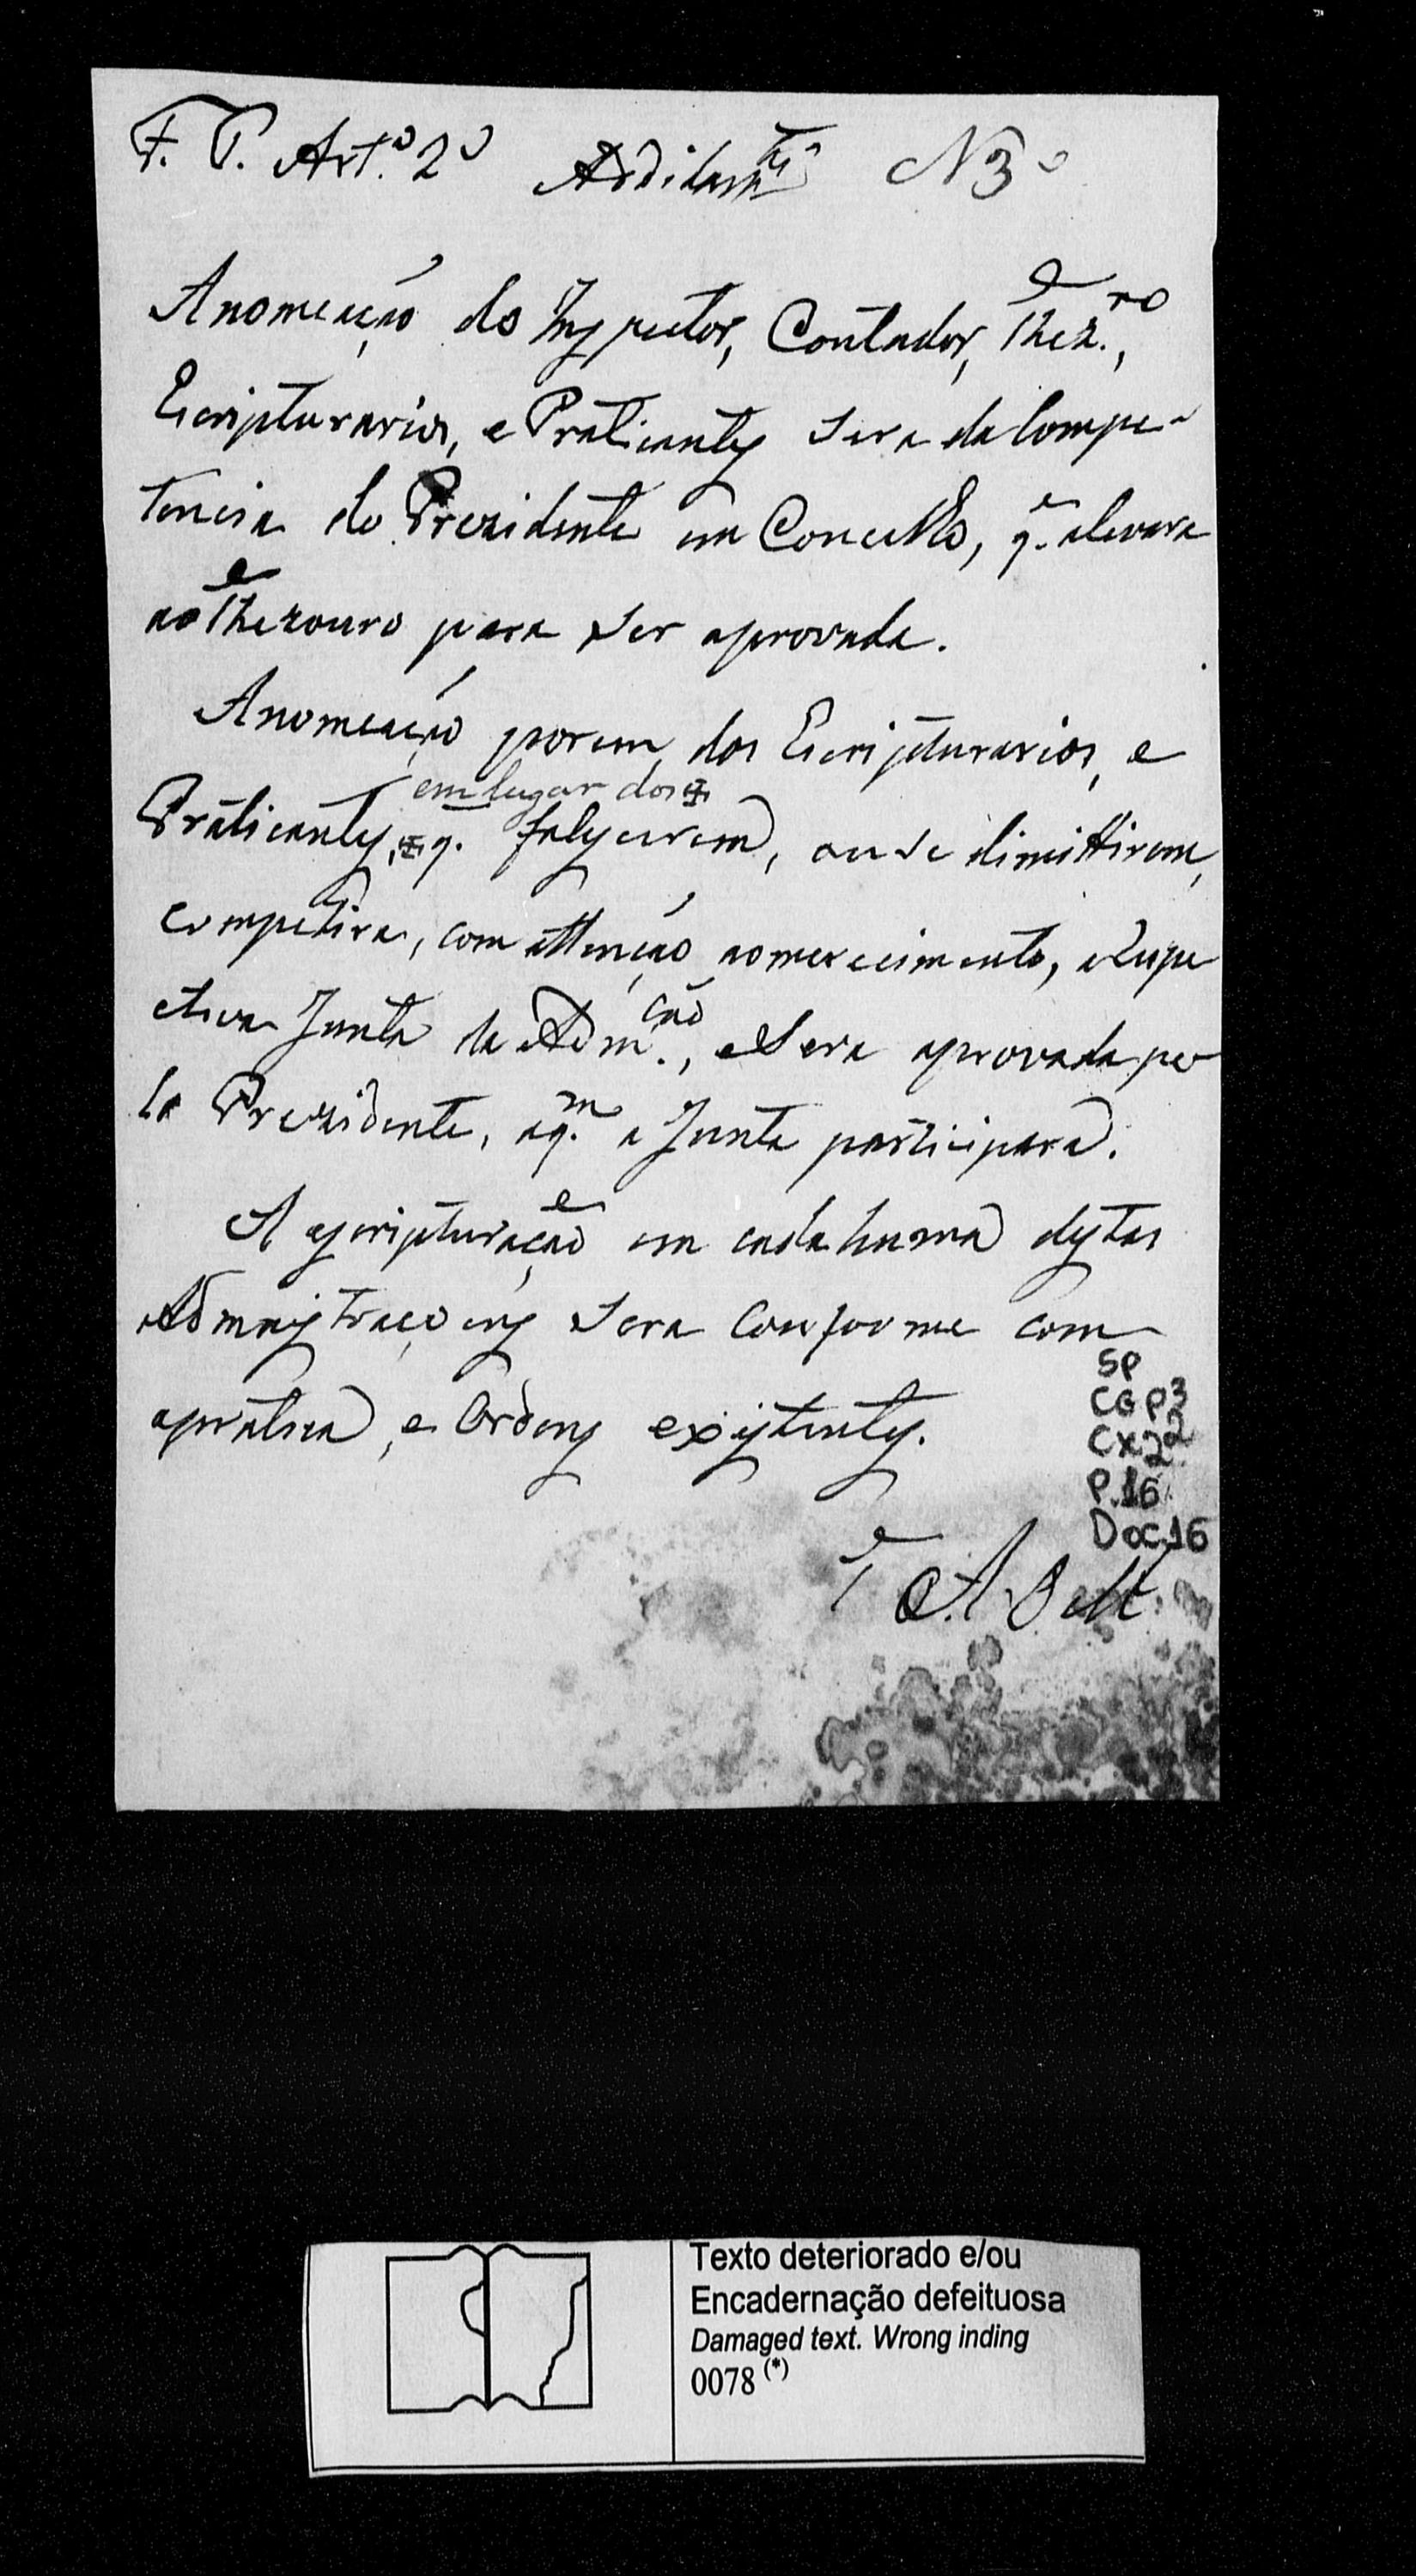 F. P. Art.º 2º Additam.to Nº 3º
A nomeação do Inspector, Contador, Thez.ro,
Escripturarios, e Praticantes sera da Compe-
tencia do Prezidente em Concelho, q. a levara
ao Thezouro para ser aprovada.
A nomeação porem dos Escripturarios, e
em lugar dos
Praticantes, q. falescerem, ou se dimittirem,
competira, com attenção ao merecimento, a Respe
ctiva Junta da Adm.ção, e Sera aprovada pe
lo Prezidente, a q.m a Junta participará.
A escripturação em cada huma destas
Administraçoens Sera Conforme com
a pratica, e Ordens existentes.
SP
CGP3
CX22
P.16
Doc.16
Texto deteriorado e/ou
Encadernação defeituosa
Damaged text. Wrong inding
0078 (*)